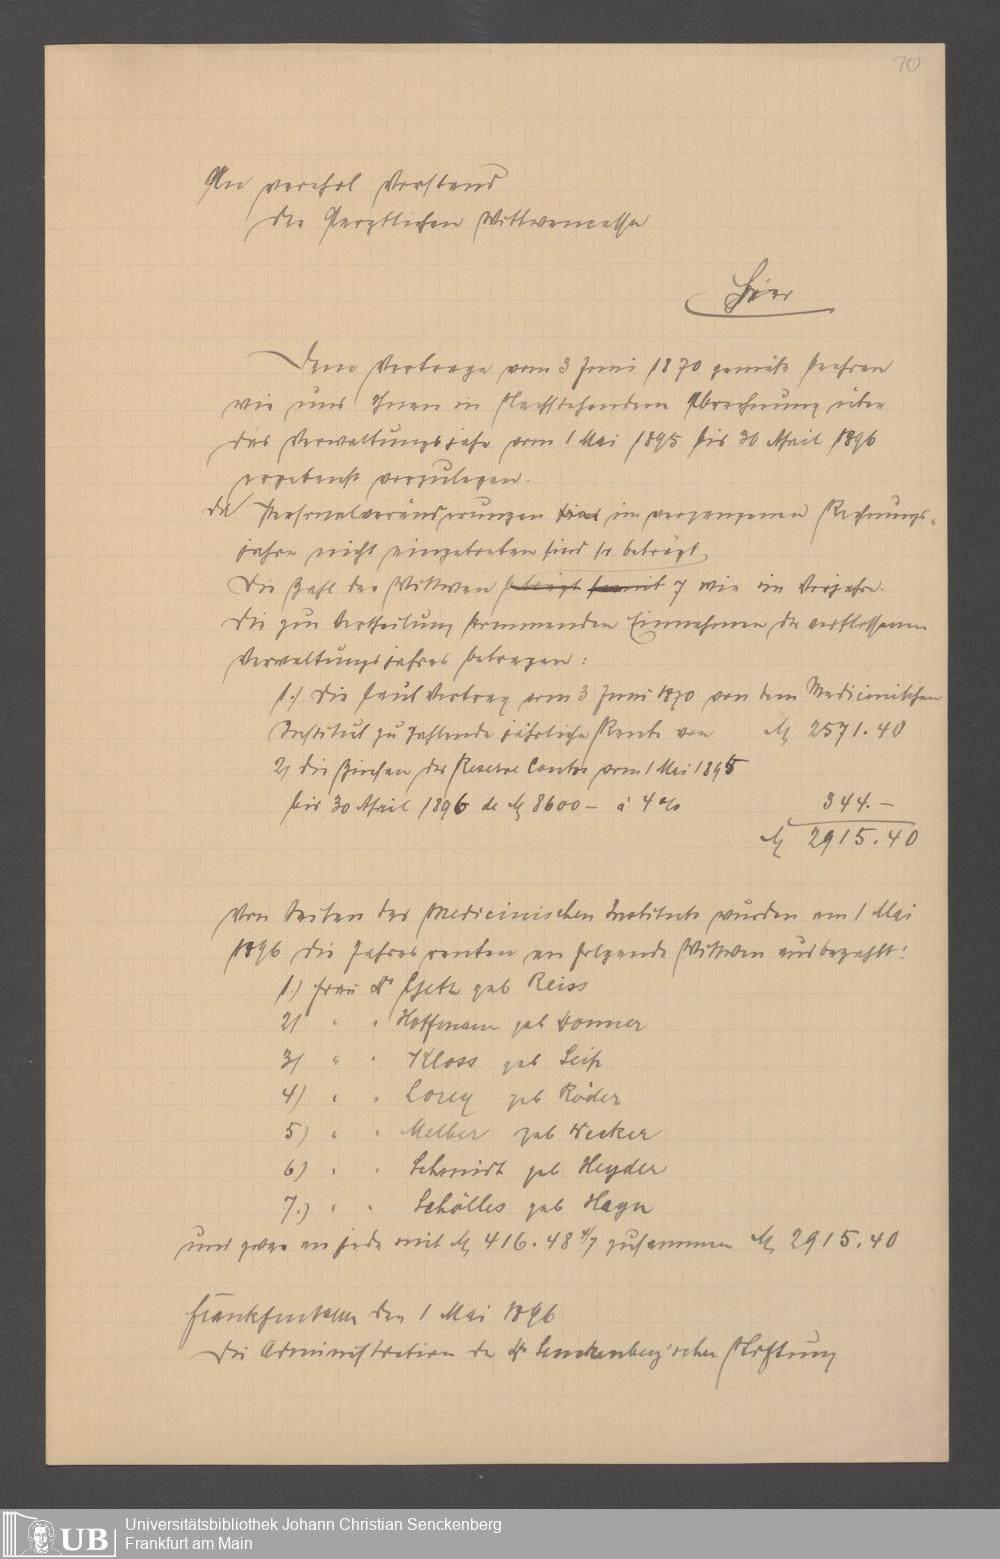 70
An verehrl Vorstand
der Aerztlichen Wittwencasse
Hier
Dem Vertrage vom 3 Juni 1870 gemäß beehren
wir uns Ihnen in Nachstehendem Abrechnung über
das Verwaltungsjahr vom 1 Mai 1895 bis 30 April 1896
ergebenst vorzulegen.
Da Personalveränderungen sind im vergangenen Rechnungs-
jahre nicht eingetreten sind so beträgt
die Zahl der Wittwen beträgt somit 7 wie im Vorjahre.
Die zur Vertheilung kommenden Einnahmen des verflossenen
Verwaltungsjahres betragen:
1.) die laut Vertrag vom 3 Juni 1870 von dem Medicinischen
Institut zu zahlende jährliche Rente von M 2571.40
2) die Zinsen des Reserve Contos vom 1 Mai 1895
bis 30 April 1896 de M 8600 – à 4 % 344.–
M 2915.40
Von Seiten des Medicinischen Instituts wurden am 1 Mai
1896 die Jahresrenten an folgende Wittwen ausbezahlt:
1.) Frau Dr geb Reiss
2) " " Hoffmann geb Donner
3) " " Kloss geb
4) " " Lorey geb Röder
5) " " Melber geb Decker
6) " " Schmidt geb Heyder
7.) " " Schölles geb Hagn
und zwar an jede mit M 416.48 4/7 zusammen M 2915.40
Frankfurt a/M den 1 Mai 1896
Die Administration der Dr Senckenberg'schen Stiftung
UB
Universitätsbibliothek Johann Christian Senckenberg
Frankfurt am Main